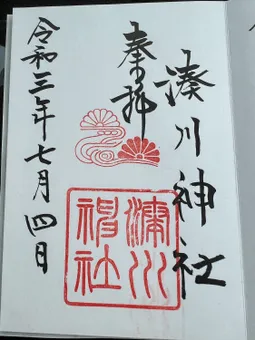 奉拝
湊川神社
湊川神社
令和三年七月四日